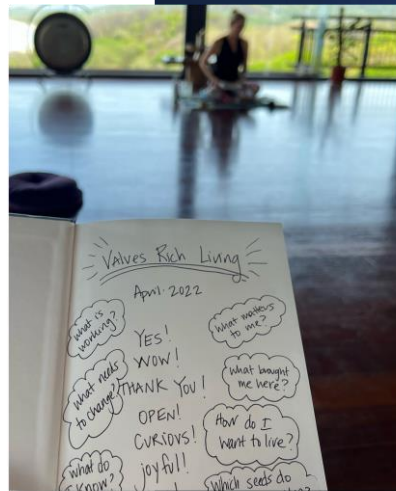 Values Rich Living
April 2022
what is
working?
what needs
to change?
what do
I know?
YES!
WOW!
THANK YOU!
OPEN!
CURIOUS!
joyful!
what matters
to me?
what brought
me here?
How do I
want to live?
Which seeds do